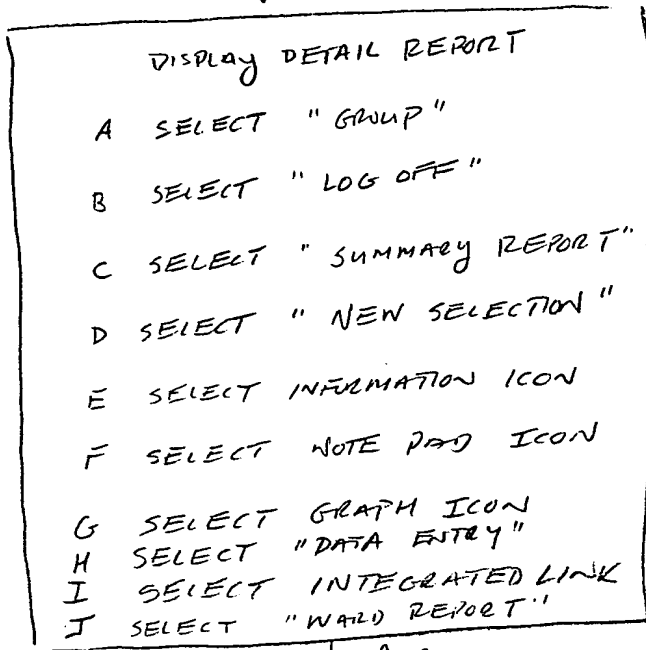 DISPLAY DETAIL REPORT
A SELECT "GROUP"
B SELECT "LOG OFF"
C SELECT "SUMMARY REPORT"
D SELECT "NEW SELECTION"
E SELECT INFORMATION ICON
F SELECT NOTE PAD ICON
G SELECT GRAPH ICON
H SELECT "DATA ENTRY"
I SELECT INTEGRATED LINK
J SELECT "WARD REPORT"